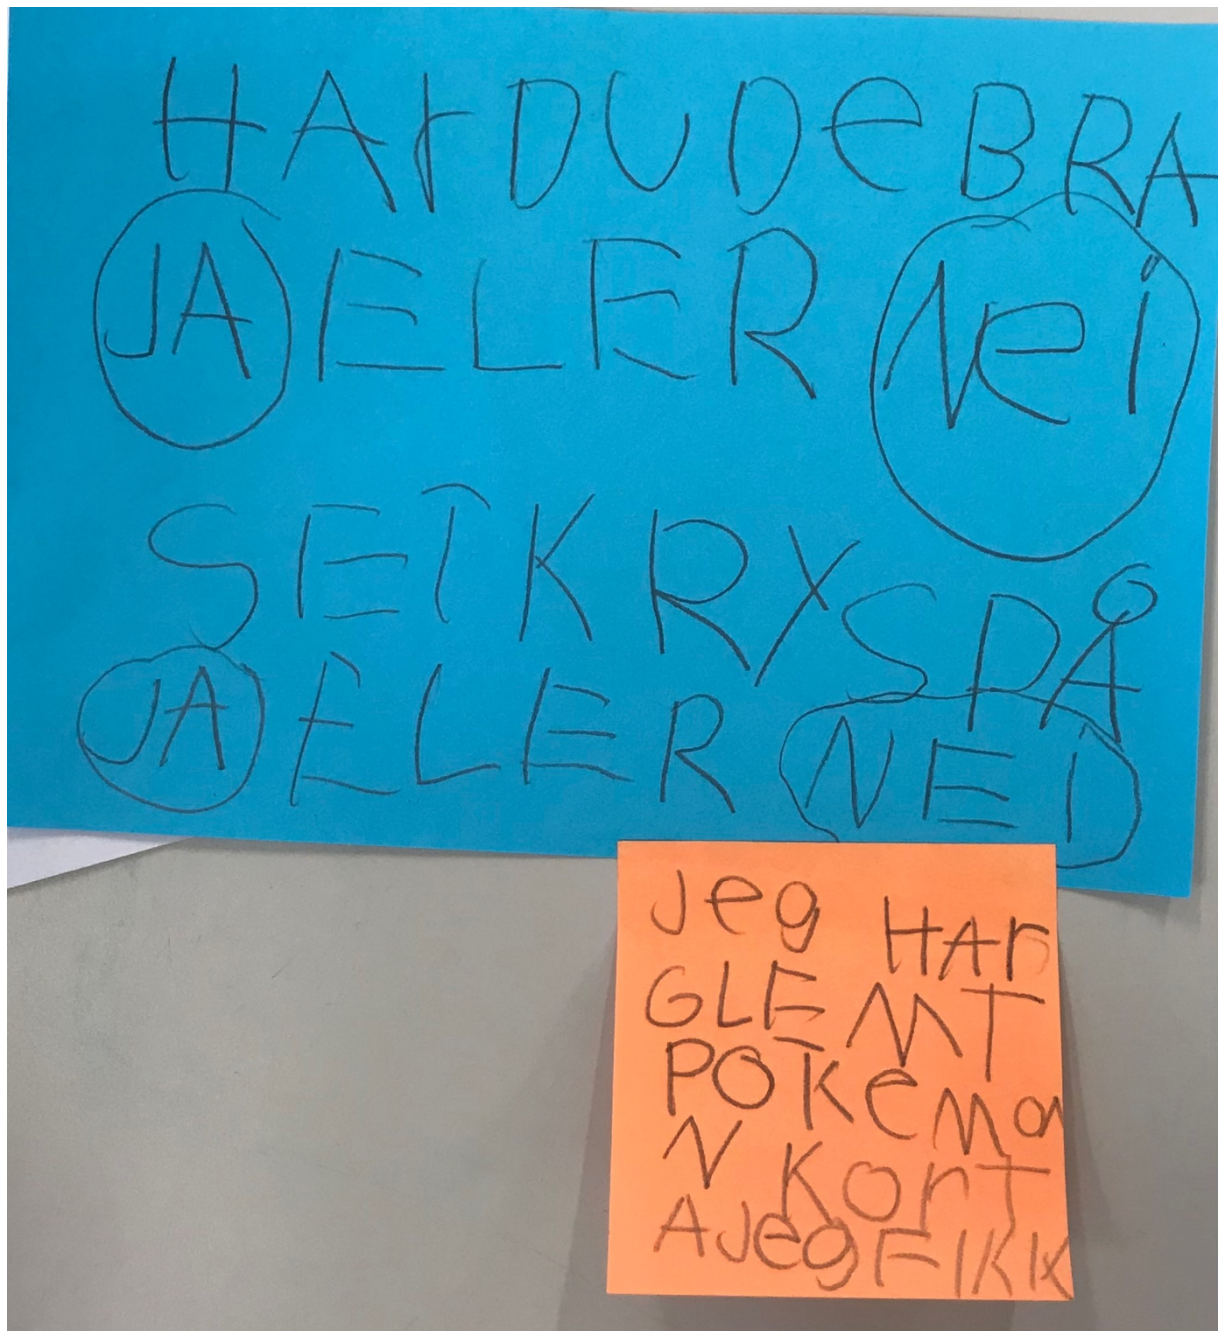 HArDUDeBRA
JA ELER Nei
SETKRYSPÅ
JA ELER NEI
Jeg HAr
GLEMT
POKemon
N KorT
AJegFIKK